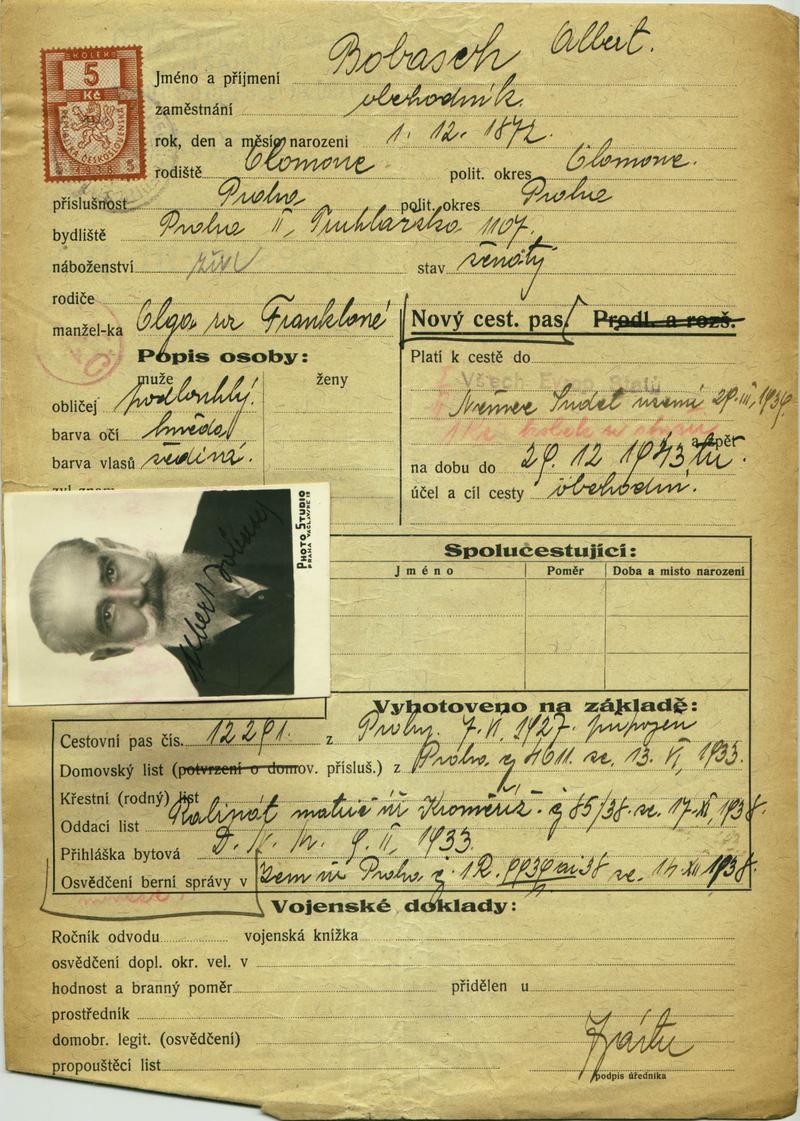 KOLEK
5
Kč
REPUBLIKA ČESKOSLOVENSKÁ
Jméno a příjmení Bobasch Albert.
zaměstnání obchodník
rok, den a měsíc narozeni 1. 12. 1872.
rodiště Olomouc polit. okres Olomouc.
příslušnost Praha polit. okres Praha
bydliště Praha II, Truhlářská 1107.
náboženství žid stav ženatý
rodiče
manžel-ka Olga roz Franklové
Nový cest. pas. Prodl. a rozš.
Popis osoby:
muže ženy
obličej podlouhlý.
barva očí hnědá
barva vlasů šedivá.
Platí k cestě do
Všech Evrop. Států
Němec Sudet území 29. III, 1939
a zpět
na dobu do 29. 12 1943
účel a cíl cesty obchodní.
PHOTO STUDIO
PRAHA VÁCLAVSKÉ
Albert
Spolucestující:
Jméno Poměr Doba a místo narození
Vyhotoveno na základě:
Cestovní pas čís. 12291. z Prahy. 7. VI. 1927. připojen
Domovský list (potvrzení o domov. přísluš.) z Praha č 4611. ze. 13. VI, 1933.
Křestní (rodný) list
Oddací list matrič úř Kroměříž. č 85/38. ze. 17. XI, 1938.
Přihláška bytová 9. II, 1933.
Osvědčení berní správy v Zem úř Praha č. 38 ze. 14. XII 1938.
Vojenské doklady:
Ročník odvodu vojenská knížka
osvědčení dopl. okr. vel. v
hodnost a branný poměr přidělen u
prostředník
domobr. legit. (osvědčení)
propouštěcí list
podpis úředníka